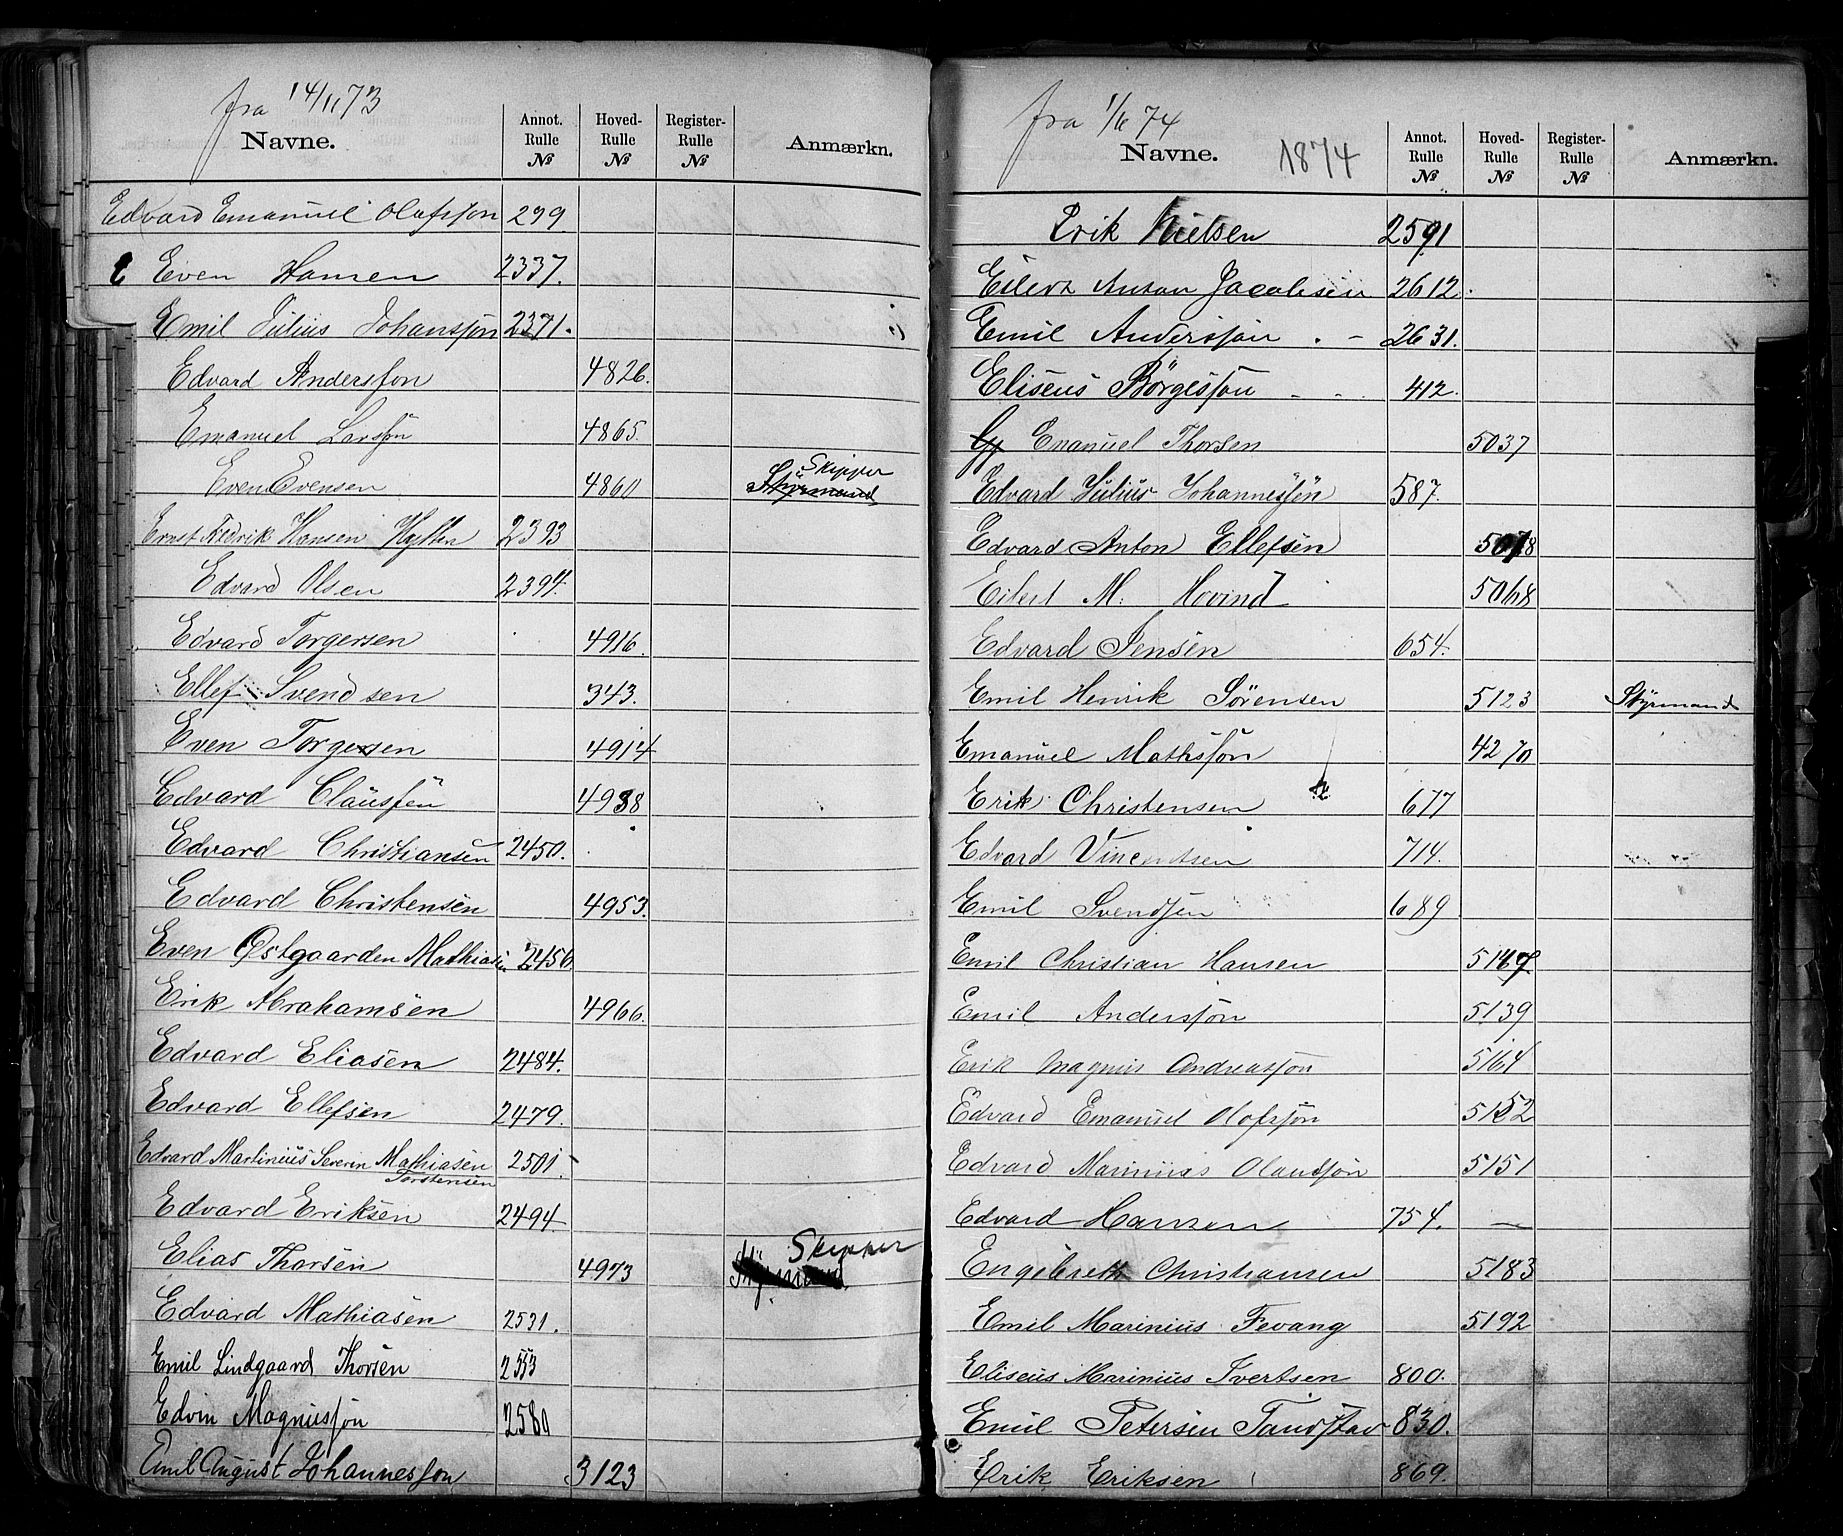 fra 14/11 73
Navne. Annot. Rulle № Hoved- Rulle № Register- Rulle № Anmærkn.
Edvard Emanuel Olafsson 299
Even Hansen 2337.
Emil Julius Johansson 2371.
Edvard Andersson 4826.
Emanuel Larsson 4865.
Skipper
Even Evensen 4860 Styrmand
Ernst Fredrik Hansen 2393
Edvard Olsen 2394.
Edvard Torgersen 4916.
Ellef Svendsen 343.
Even Torgersen 4914
Edvard Claussen 4938
Edvard Christiansen 2450.
Edvard Christensen 4953.
Even Østgaarden Mathiasen 2456
Erik Abrahamsen 4966.
Edvard Eliasen 2484.
Edvard Ellefsen 2479.
Edvard Martinius Severin Mathiasen 2501
Torstensen
Edvard Eriksen 2494
Skipper
Elias Thorsen 4973 Styrmand
Edvard Mathiasen 2531.
Emil Lindgaard Thorsen 2553
Edvin Magnusson 2580
Emil August Johannesson 3123
fra 1/6 74
Navne. 1874 Annot. Rulle № Hoved- Rulle № Register- Rulle № Anmærkn.
Erik Nielsen 2591
Eilert Anton Jacobsen 2612.
Emil Andersson 2631.
Eliseus Börgesson 412.
Emanuel Thorsen 5037
Edvard Julius Johannessen 587.
Edvard Anton Ellefsen 5078
Eilert M. Hovind 5068
Edvard Jensen 654.
Emil Henrik Sørensen 5123 Styrmand
Emanuel Mathsson 4270
Erik Christensen 677
Edvard Vincentsen 714.
Emil Svendsen 689
Emil Christian Hansen
Emil Andersson 5139
Erik Magnus Andreasson 5164
Edvard Emanuel Olofsson 5152
Edvard Marinius Olausson 5151
Edvard Hansen 754. —
Engebreth Christiansen 5183
Emil Marinius Fevang 5192
Eliseus Marinius Ivertsen 800.
Emil Petersen 830.
Erik Eriksen 869.